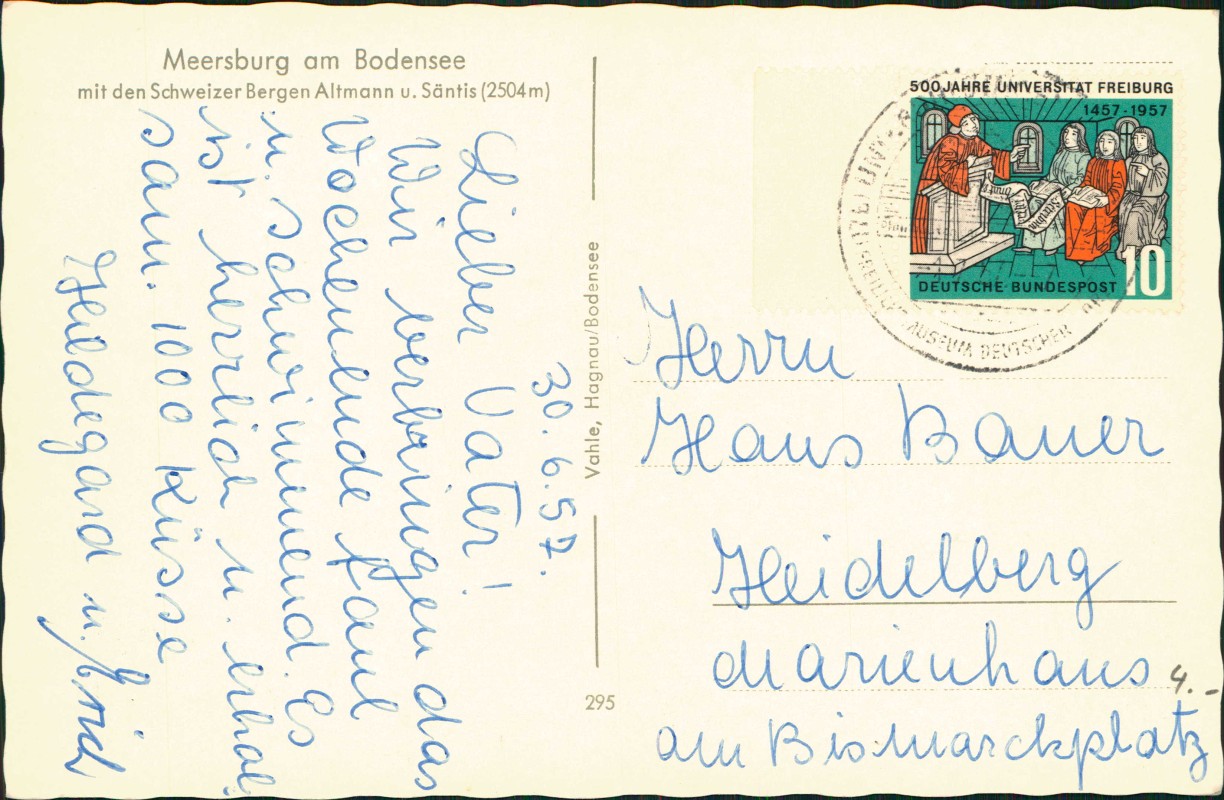 Meersburg am Bodensee
mit den Schweizer Bergen Altmann u. Säntis (2504 m)
30.6.57.
Lieber Vater!
Wir verbringen das
Wochenende faul
u. schwimmend. Es
ist herrlich u. erhol-
sam. 1000 Küsse
Hildegard u. Erich
Vahle, Hagnau/Bodensee
295
500 JAHRE UNIVERSITÄT FREIBURG
1457·1957
DEUTSCHE·BUNDESPOST 10
MUSEUM DEUTSCHER
Herrn
Hans Bauer
Heidelberg
Marienhaus
am Bismarckplatz
4.-